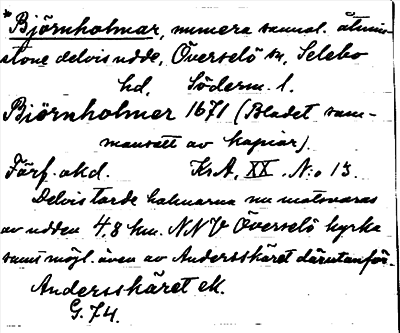 *Björnholmar, numera sannol. åtmin-
stone delvis udde, Överselö sn, Selebo
hd, Söderm. l.
Björnholmar 1671 (Bladet sam-
mansatt av kopior).
Förf. okd. KrA, XX, N:o 13.
Delvis torde holmarna nu motsvaras
av udden 4,8 km. NNV Överselö kyrka
samt möjl. även av Andersskäret därutanför.
Andersskäret ek.
G. 74.